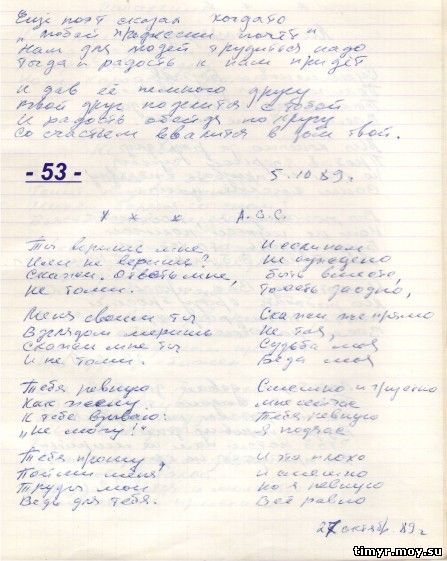 Ещё поэт сказал когда-то
"Любой профессии почёт"
Нам для людей трудится надо
Тогда и радость к нам придёт
И дав её немного другу
Твой друг поделится с тобой
И радость обойдя по кругу
Со счастьем ввалится в дом твой.
- 53 -
5.10.89г.
х х х А.В.С.
Ты веришь мне
Или не веришь?
Скажи. Ответь мне,
Не томи.
Меня своим ты
Взглядом меришь
Скажи мне ты
И не томи.
Тебя ревную
Как жену.
К тебе взываю:
"Не могу!"
Тебя прошу
Пойми меня
Труды мои
Ведь для тебя.
И если нам
Не суждено
Быть вместе,
То есть заодно,
Скажи же прямо
Не тая,
Судьба моя
Беда моя
Смешно и грустно
мне сейчас
Тебя ревную
Я подчас
И то плохо
И смешно
Но я ревную
Всё равно
27 октябр. 89г
timyr.moy.su